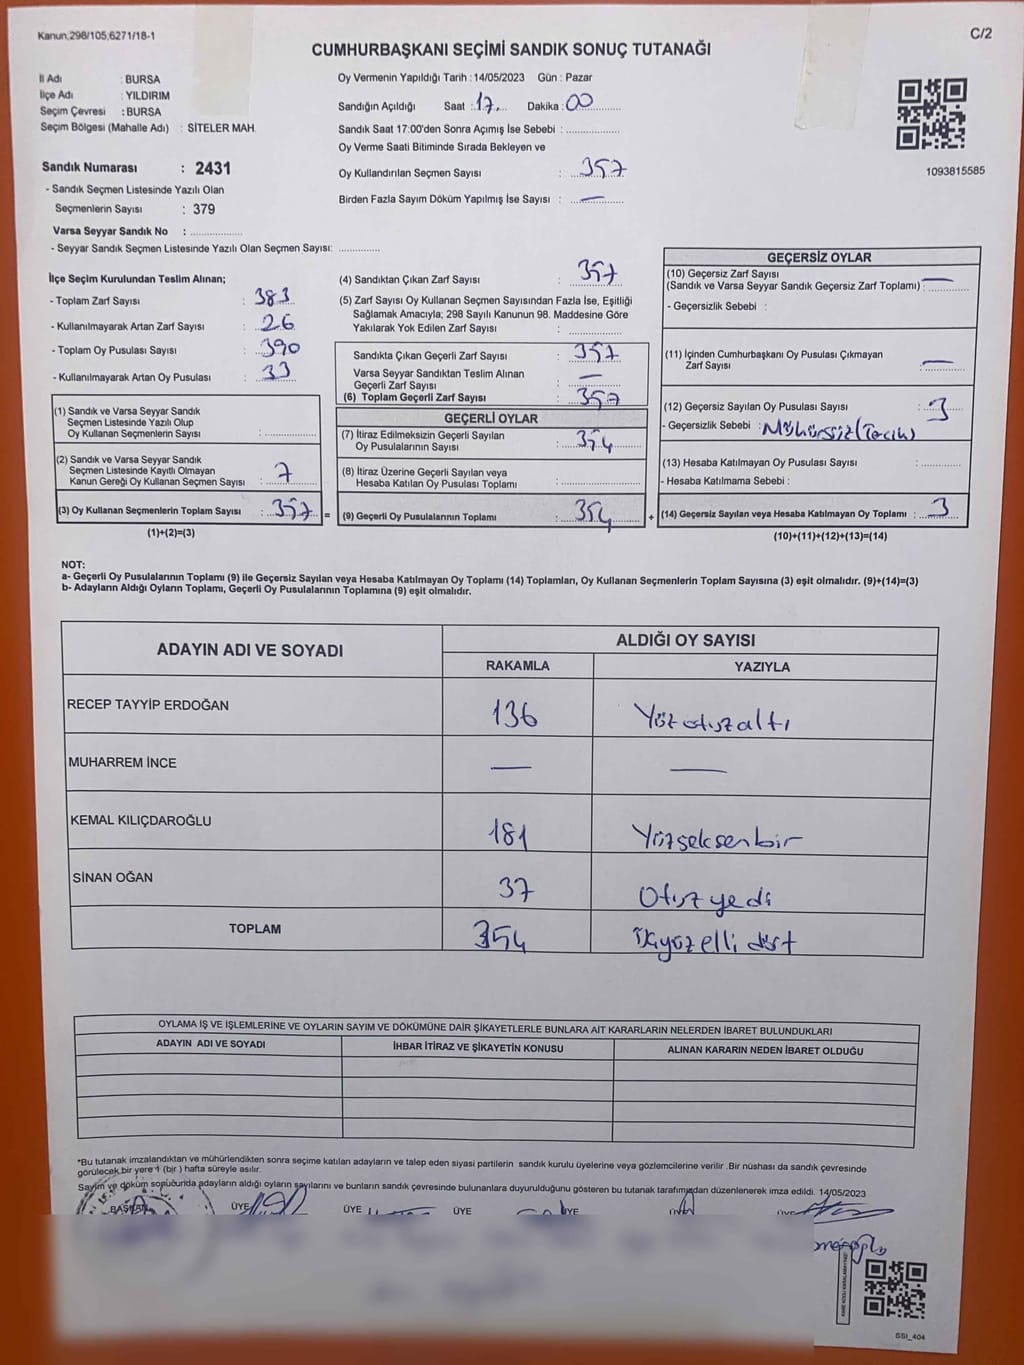 Kanun.298/105;6271/18-1
C/2
CUMHURBAŞKANI SEÇİMİ SANDIK SONUÇ TUTANAĞI
İl Adı : BURSA
İlçe Adı : YILDIRIM
Seçim Çevresi : BURSA
Seçim Bölgesi (Mahalle Adı) : SİTELER MAH.
Oy Vermenin Yapıldığı Tarih : 14/05/2023 Gün : Pazar
Sandığın Açıldığı Saat : 17 Dakika : 00
Sandık Saat 17:00'den Sonra Açımış İse Sebebi :
Oy Verme Saati Bitiminde Sırada Bekleyen ve
Oy Kullandırılan Seçmen Sayısı : 357
Birden Fazla Sayım Döküm Yapılmış İse Sayısı : —
1093815585
Sandık Numarası : 2431
- Sandık Seçmen Listesinde Yazılı Olan
Seçmenlerin Sayısı : 379
Varsa Seyyar Sandık No :
- Seyyar Sandık Seçmen Listesinde Yazılı Olan Seçmen Sayısı:
İlçe Seçim Kurulundan Teslim Alınan;
- Toplam Zarf Sayısı : 383
- Kullanılmayarak Artan Zarf Sayısı : 26
- Toplam Oy Pusulası Sayısı : 390
- Kullanılmayarak Artan Oy Pusulası : 33
(1) Sandık ve Varsa Seyyar Sandık
Seçmen Listesinde Yazılı Olup
Oy Kullanan Seçmenlerin Sayısı :
(2) Sandık ve Varsa Seyyar Sandık
Seçmen Listesinde Kayıtlı Olmayan
Kanun Gereği Oy Kullanan Seçmen Sayısı : 7
(3) Oy Kullanan Seçmenlerin Toplam Sayısı : 357 =
(1)+(2)=(3)
(4) Sandıktan Çıkan Zarf Sayısı : 357
(5) Zarf Sayısı Oy Kullanan Seçmen Sayısından Fazla İse, Eşitliği
Sağlamak Amacıyla; 298 Sayılı Kanunun 98. Maddesine Göre
Yakılarak Yok Edilen Zarf Sayısı :
Sandıkta Çıkan Geçerli Zarf Sayısı : 357
Varsa Seyyar Sandıktan Teslim Alınan
Geçerli Zarf Sayısı : —
(6) Toplam Geçerli Zarf Sayısı : 357
GEÇERLİ OYLAR
(7) İtiraz Edilmeksizin Geçerli Sayılan
Oy Pusulalarının Sayısı : 354
(8) İtiraz Üzerine Geçerli Sayılan veya
Hesaba Katılan Oy Pusulası Toplamı :
(9) Geçerli Oy Pusulalarının Toplamı : 354 +
GEÇERSİZ OYLAR
(10) Geçersiz Zarf Sayısı
(Sandık ve Varsa Seyyar Sandık Geçersiz Zarf Toplamı) : —
- Geçersizlik Sebebi :
(11) İçinden Cumhurbaşkanı Oy Pusulası Çıkmayan
Zarf Sayısı : —
(12) Geçersiz Sayılan Oy Pusulası Sayısı : 3
- Geçersizlik Sebebi : Mühürsüz
(13) Hesaba Katılmayan Oy Pusulası Sayısı :
- Hesaba Katılmama Sebebi :
(14) Geçersiz Sayılan veya Hesaba Katılmayan Oy Toplamı : 3
(10)+(11)+(12)+(13)=(14)
NOT:
a- Geçerli Oy Pusulalarının Toplamı (9) ile Geçersiz Sayılan veya Hesaba Katılmayan Oy Toplamı (14) Toplamları, Oy Kullanan Seçmenlerin Toplam Sayısına (3) eşit olmalıdır. (9)+(14)=(3)
b- Adayların Aldığı Oyların Toplamı, Geçerli Oy Pusulalarının Toplamına (9) eşit olmalıdır.
ADAYIN ADI VE SOYADI
ALDIĞI OY SAYISI
RAKAMLA YAZIYLA
RECEP TAYYİP ERDOĞAN 136 Yüz otuz altı
MUHARREM İNCE — —
KEMAL KILIÇDAROĞLU 181 Yüzseksenbir
SİNAN OĞAN 37 Otuz yedi
TOPLAM 354 İkiyüzelli dört
OYLAMA İŞ VE İŞLEMLERİNE VE OYLARIN SAYIM VE DÖKÜMÜNE DAİR ŞİKAYETLERLE BUNLARA AİT KARARLARIN NELERDEN İBARET BULUNDUKLARI
ADAYIN ADI VE SOYADI İHBAR İTİRAZ VE ŞİKAYETİN KONUSU ALINAN KARARIN NEDEN İBARET OLDUĞU
*Bu tutanak imzalandıktan ve mühürlendikten sonra seçime katılan adayların ve talep eden siyasi partilerin sandık kurulu üyelerine veya gözlemcilerine verilir .Bir nüshası da sandık çevresinde
görülecek bir yere 1 (bir ) hafta süreyle asılır.
Sayım ve döküm sonucunda adayların aldığı oyların sayılarını ve bunların sandık çevresinde bulunanlara duyurulduğunu gösteren bu tutanak tarafımızdan düzenlenerek imza edildi. 14/05/2023
BAŞKAN ÜYE ÜYE ÜYE ÜYE
SSI_404